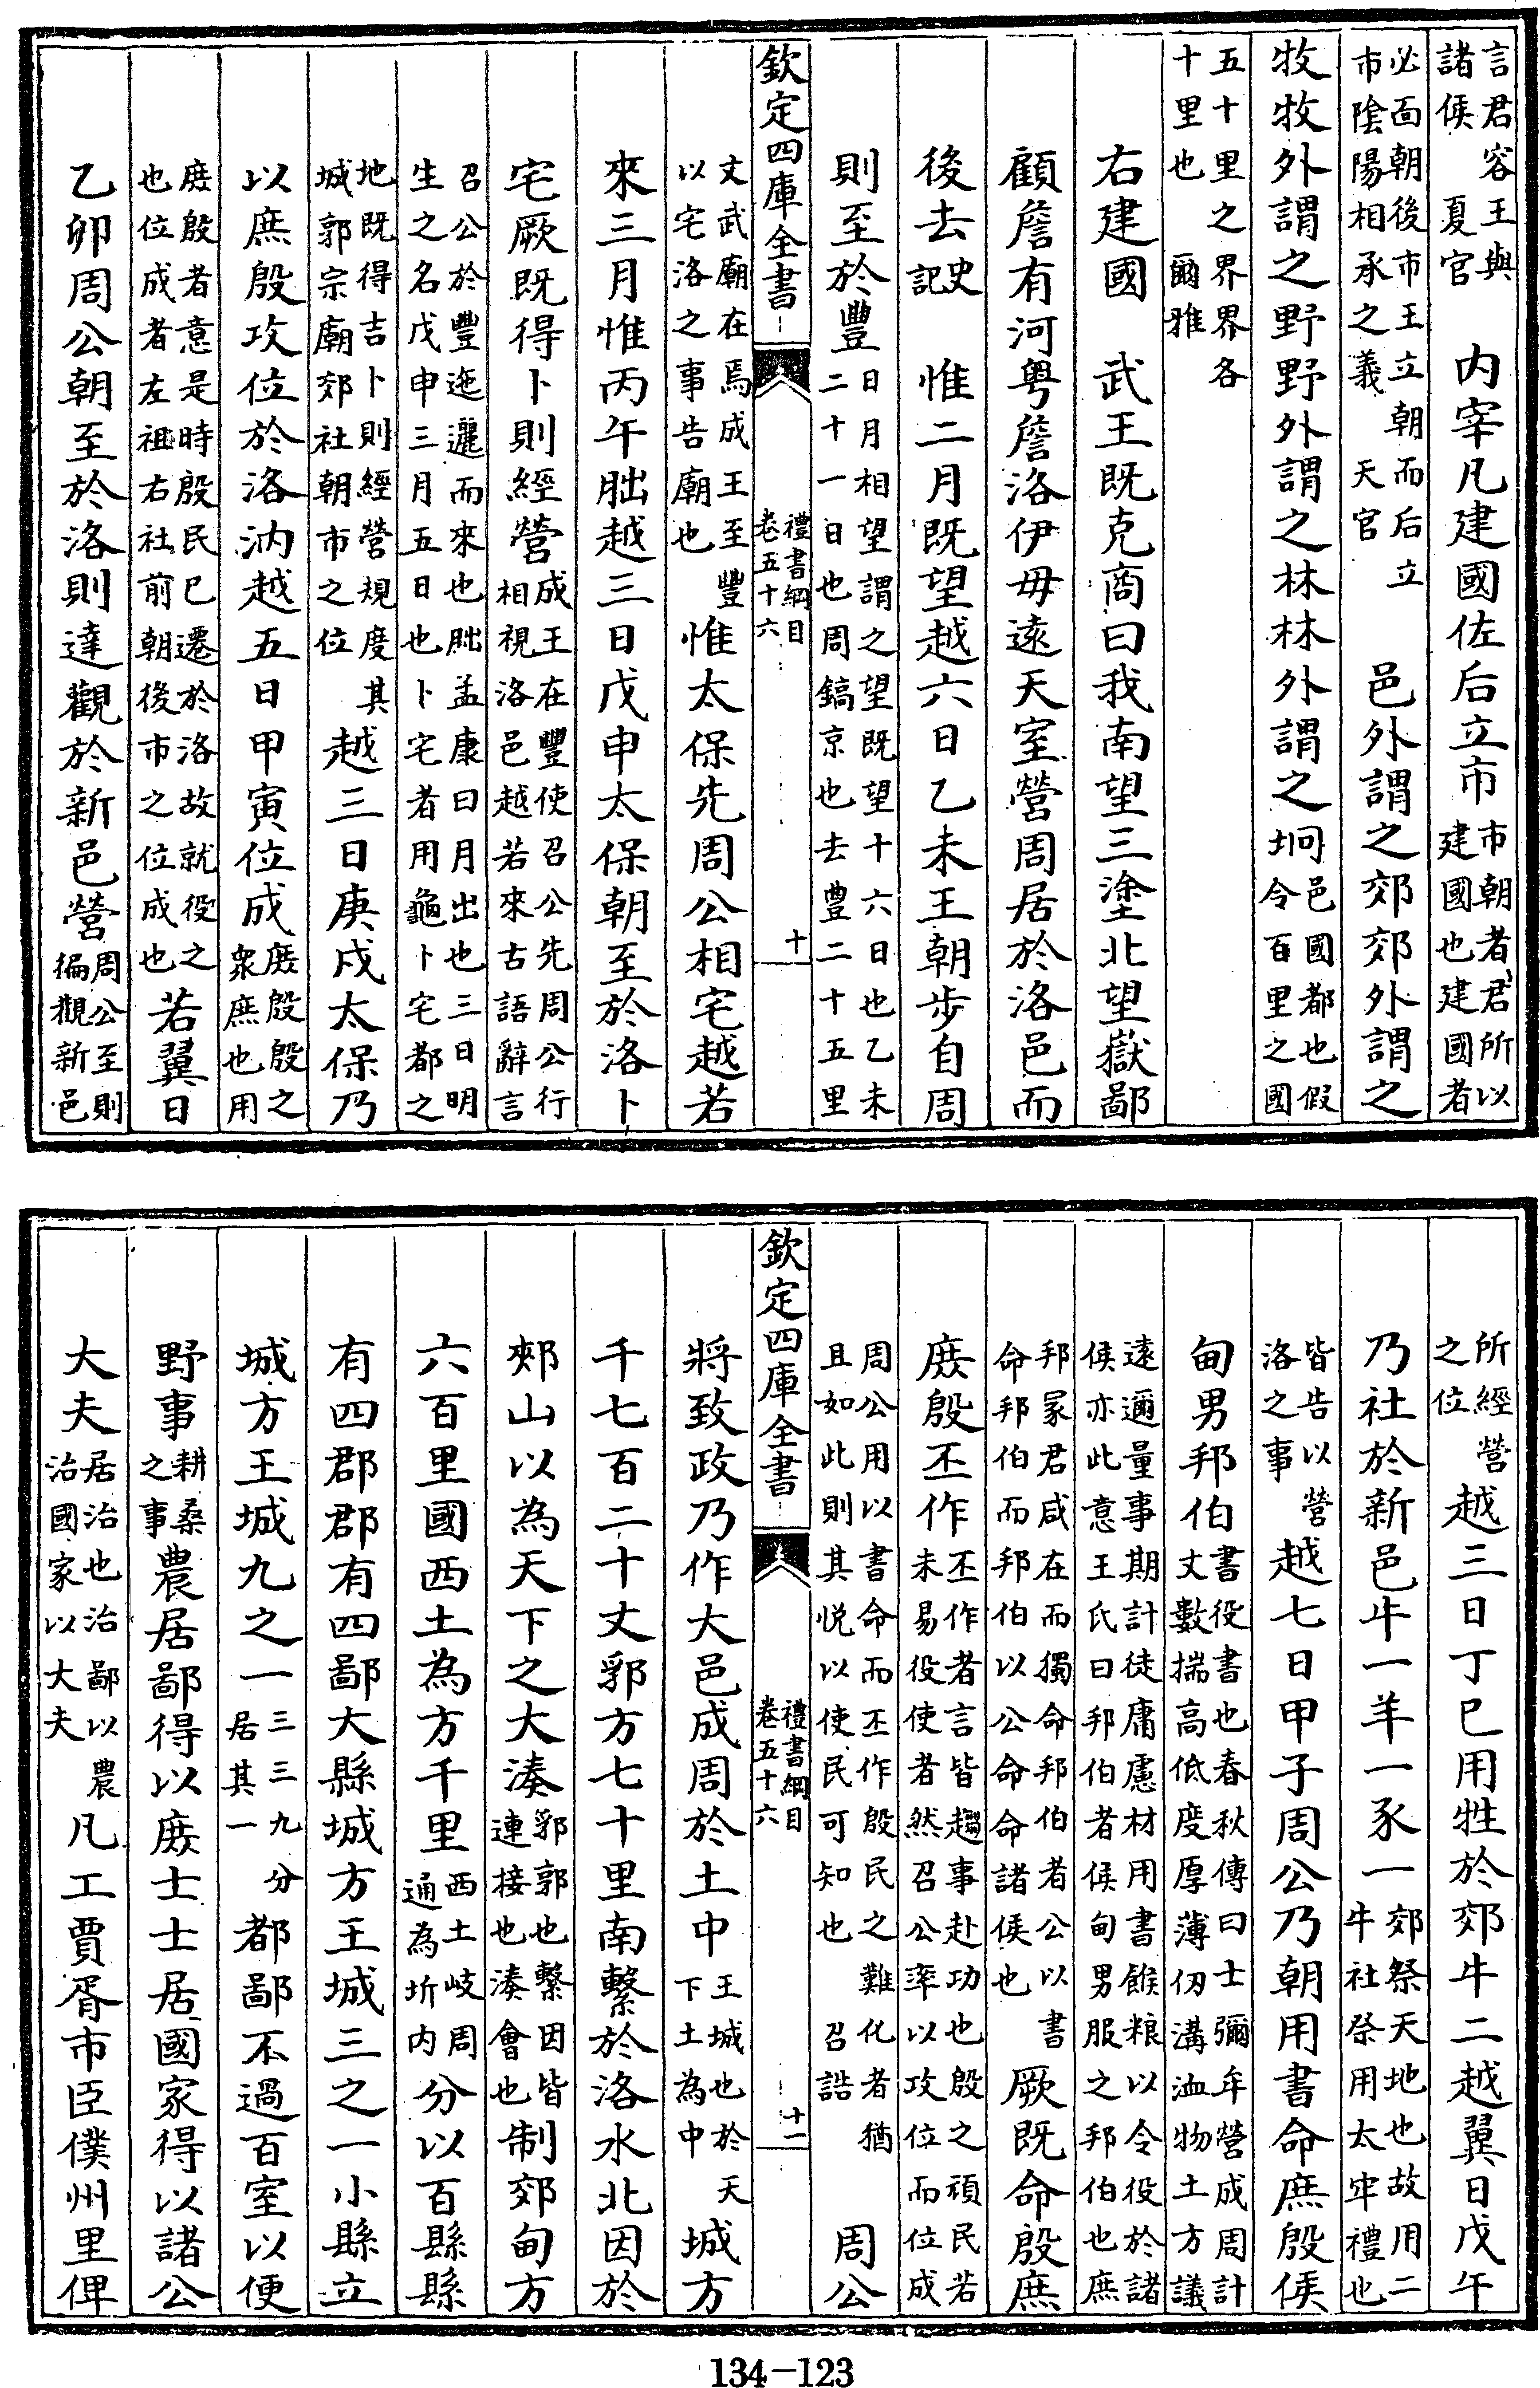 言君容王與諸侯 夏官 内宰凡建國佐后立市市朝者君所以建國也建國者
必面朝後市王立朝而后立市陰陽相承之義 天官 邑外謂之郊郊外謂之
牧牧外謂之野野外謂之林林外謂之坰邑國都也假令百里之國
五十里之界界各十里也 爾雅
右建國 武王既克商曰我南望三塗北望嶽鄙
顧詹有河粤詹洛伊毋遠天室營周居於洛邑而
後去史記 惟二月既望越六日乙未王朝步自周
則至於豐日月相望謂之望既望十六日也乙未二十一日也周鎬京也去豐二十五里
欽定四庫全書 禮書綱目 卷五十六 十
文武廟在焉成王至豐以宅洛之事告廟也 惟太保先周公相宅越若
來三月惟丙午朏越三日戊申太保朝至於洛卜
宅厥既得卜則經營成王在豐使召公先周公行相視洛邑越若來古語辭言
召公於豐迤邐而來也朏孟康曰月出也三日明生之名戊申三月五日也卜宅者用龜卜宅都之
地既得吉卜則經營規度其城郭宗廟郊社朝市之位 越三日庚戌太保乃
以庶殷攻位於洛汭越五日甲寅位成庶殷殷之衆庶也用
庶殷者意是時殷民已遷於洛故就役之也位成者左祖右社前朝後市之位成也 若翼日
乙卯周公朝至於洛則達觀於新邑營周公至則徧觀新邑
所經營之位 越三日丁巳用牲於郊牛二越翼日戊午
乃社於新邑牛一羊一豕一郊祭天地也故用二牛社祭用太牢禮也
皆告以營洛之事 越七日甲子周公乃朝用書命庶殷侯
甸男邦伯書役書也春秋傳曰士彌牟營成周計丈數揣高低度厚薄仞溝洫物土方議
遠邇量事期計徒庸慮材用書餱粮以令役於諸侯亦此意王氏曰邦伯者侯甸男服之邦伯也庶
邦冢君咸在而獨命邦伯者公以書命邦伯而邦伯以公命命諸侯也 厥既命殷庶
庶殷丕作丕作者言皆趨事赴功也殷之頑民若未易役使者然召公率以攻位而位成
周公用以書命而丕作殷民之難化者猶且如此則其悦以使民可知也 召誥 周公
欽定四庫全書 禮書綱目 卷五十六 十一
將致政乃作大邑成周於土中王城也於天下土為中 城方
千七百二十丈郛方七十里南繫於洛水北因於
郟山以為天下之大湊郛郭也繫因皆連接也湊會也制郊甸方
六百里國西土為方千里西土岐周通為圻内 分以百縣縣
有四郡郡有四鄙大縣城方王城三之一小縣立
城方王城九之一三三九分居其一 都鄙不過百室以便
野事耕桑之事農居鄙得以庶士士居國家得以諸公
大夫居治也治鄙以農治國家以大夫 凡工賈胥市臣僕州里俾
134-123